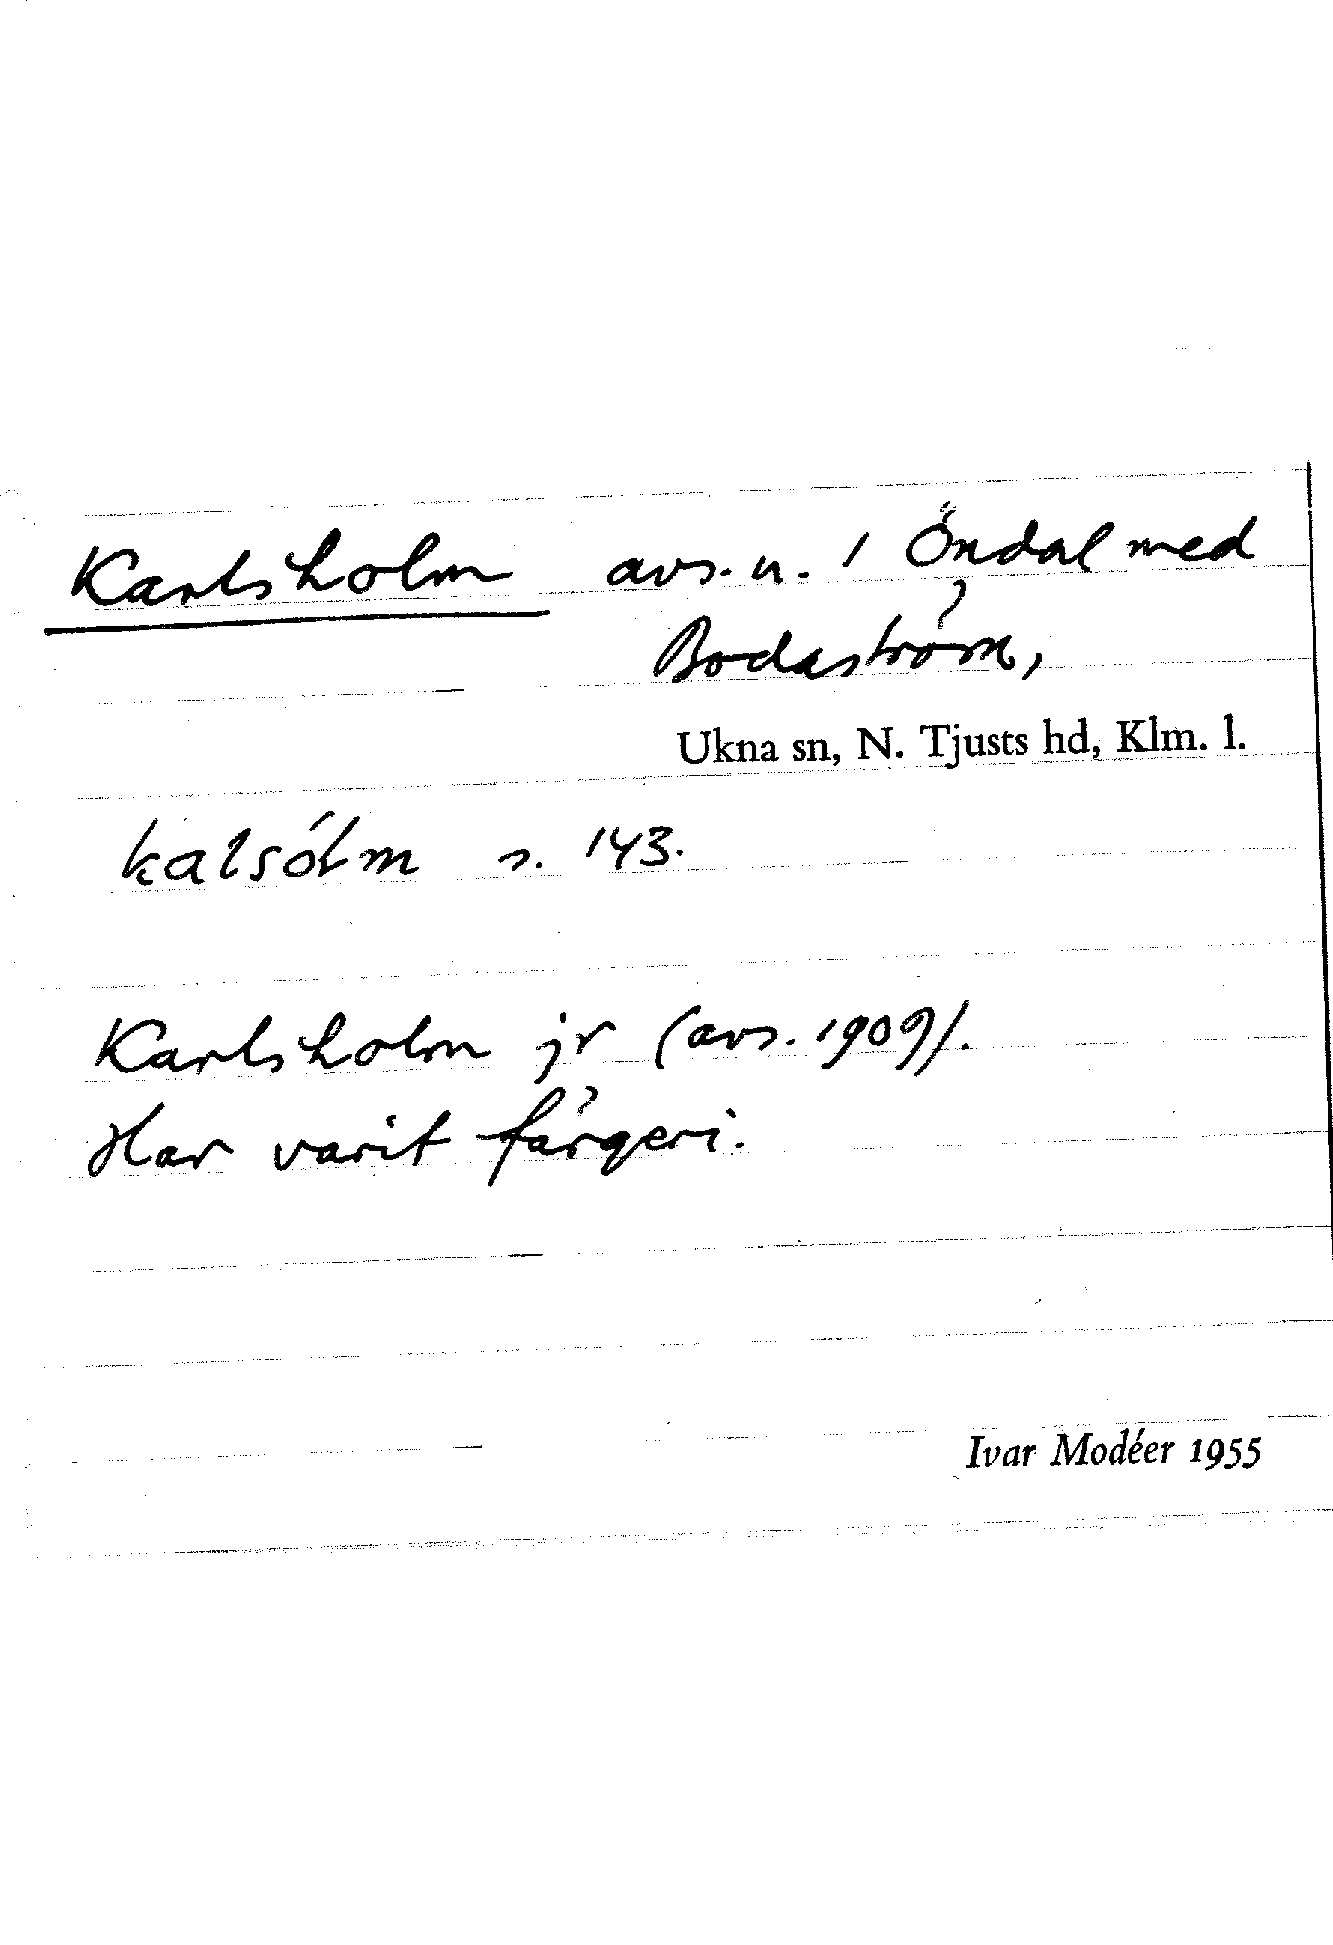 Karlsholm avs. u. 1 Öndal med
Bodaström,
Ukna sn, N. Tjusts hd, Klm. l.
kalsólm s. 143.
Karlsholm jr (avs. 1909).
Har varit färgeri.
Ivar Modéer 1955